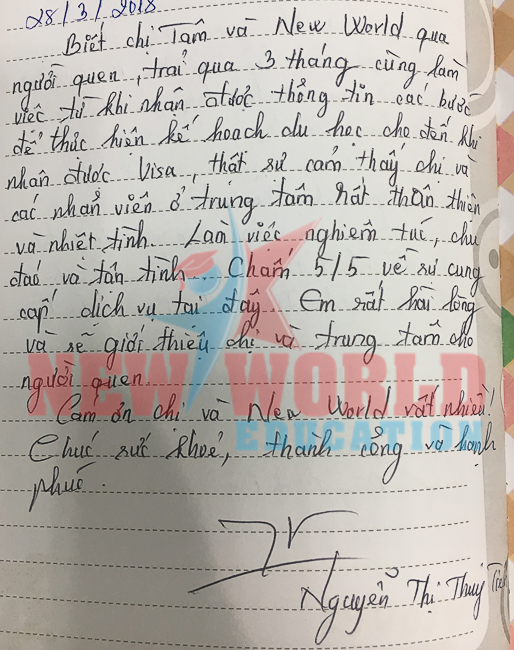 28/3/2018
Biết chị Tâm và New World qua
người quen, trải qua 3 tháng cùng làm
việc từ khi nhận được thông tin các bước
để thực hiện kế hoạch du học cho đến khi
nhận được Visa, thật sự cảm thấy chị và
các nhân viên ở trung tâm rất thân thiện
và nhiệt tình. Làm việc nghiêm túc, chu
đáo và tận tình. Chấm 5/5 về sự cung
cấp dịch vụ tại đây. Em rất hài lòng
và sẽ giới thiệu chị và trung tâm cho
người quen.
Cám ơn chị và New World rất nhiều!
Chúc sức khoẻ, thành công và hạnh
phúc.
Nguyễn Thị Thuỷ Tiên
NEW WORLD
EDUCATION